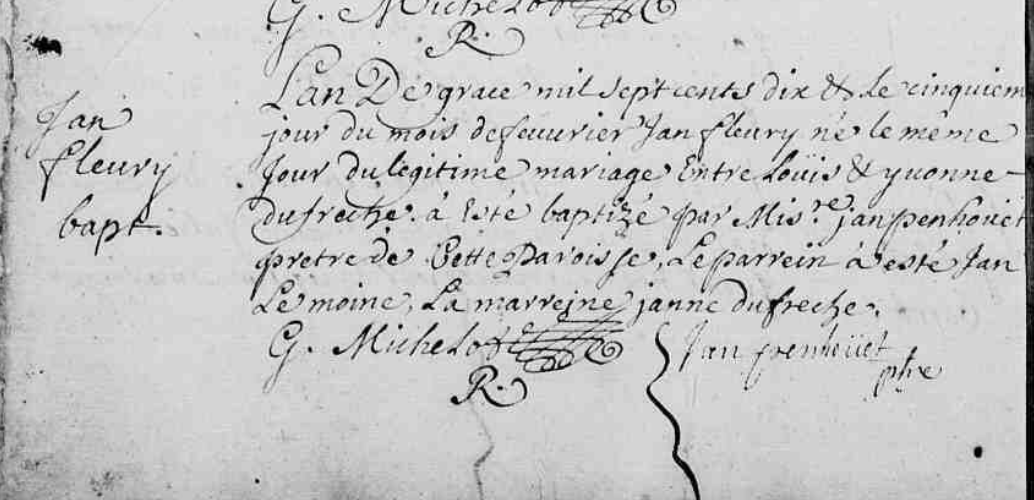 G. Michelot
R.
Jan
fleury
bapt.
Lan De grace mil sept cents dix & le cinquiem
jour du mois de feuurier Jan fleury né le même
Jour du legitime mariage Entre Loüis & yuonne
dufreche. à Esté baptizé par Mis.re jan penhoüet
pretre de Cette Paroisse, Le parrein à esté Jan
Le moine, La marreine janne dufreche.
G. Michelot
Jan penhoüet
ptre
R.